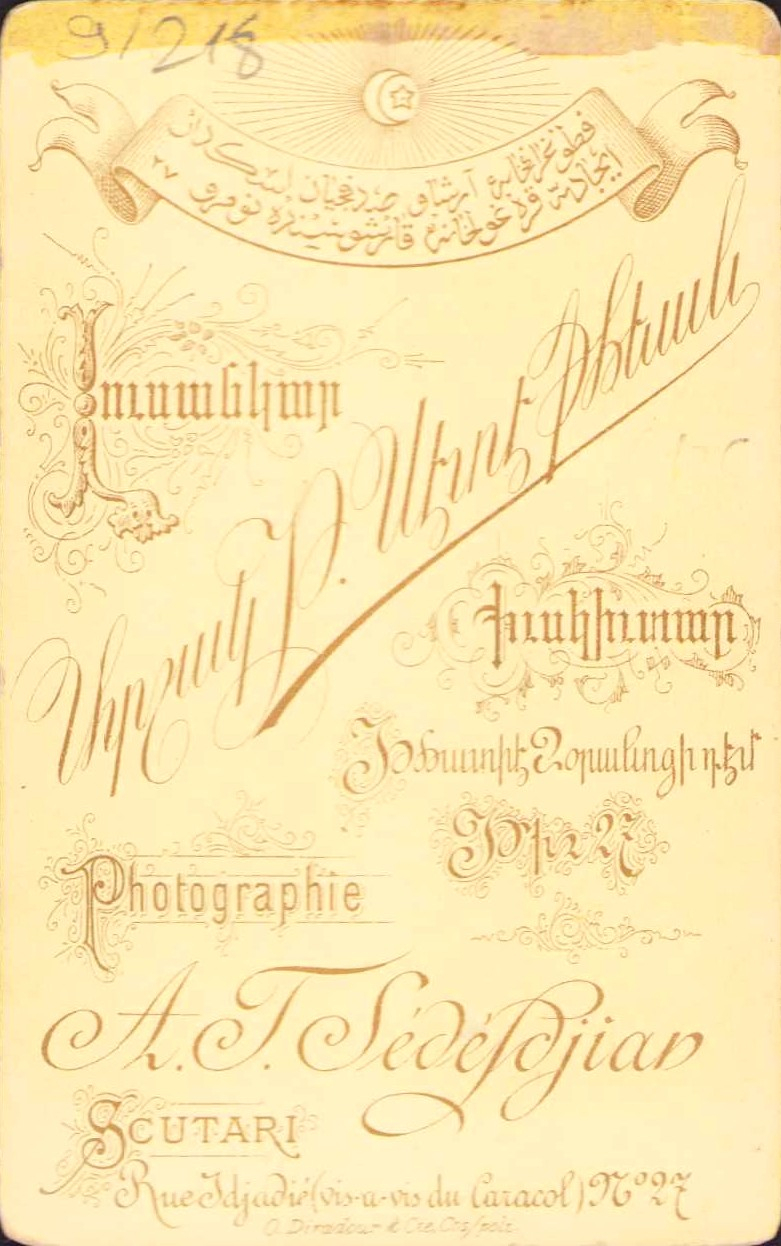 9/218
فطوغرافخانهٔ آرشاق صدفجیان اسکدار
ایجادیه قره غولخانه قارشوسنده نومرو ٢٧
Լուսանկար
Արշակ Թ. Սէտէֆճեան
Իւսկիւտար
Իճատիէ Զօրանոցի դէմ
Թիւ 27
Photographie
A. T. Sédéfdjian
SCUTARI
Rue Idjadié (vis-a-vis du Caracol) Nº 27